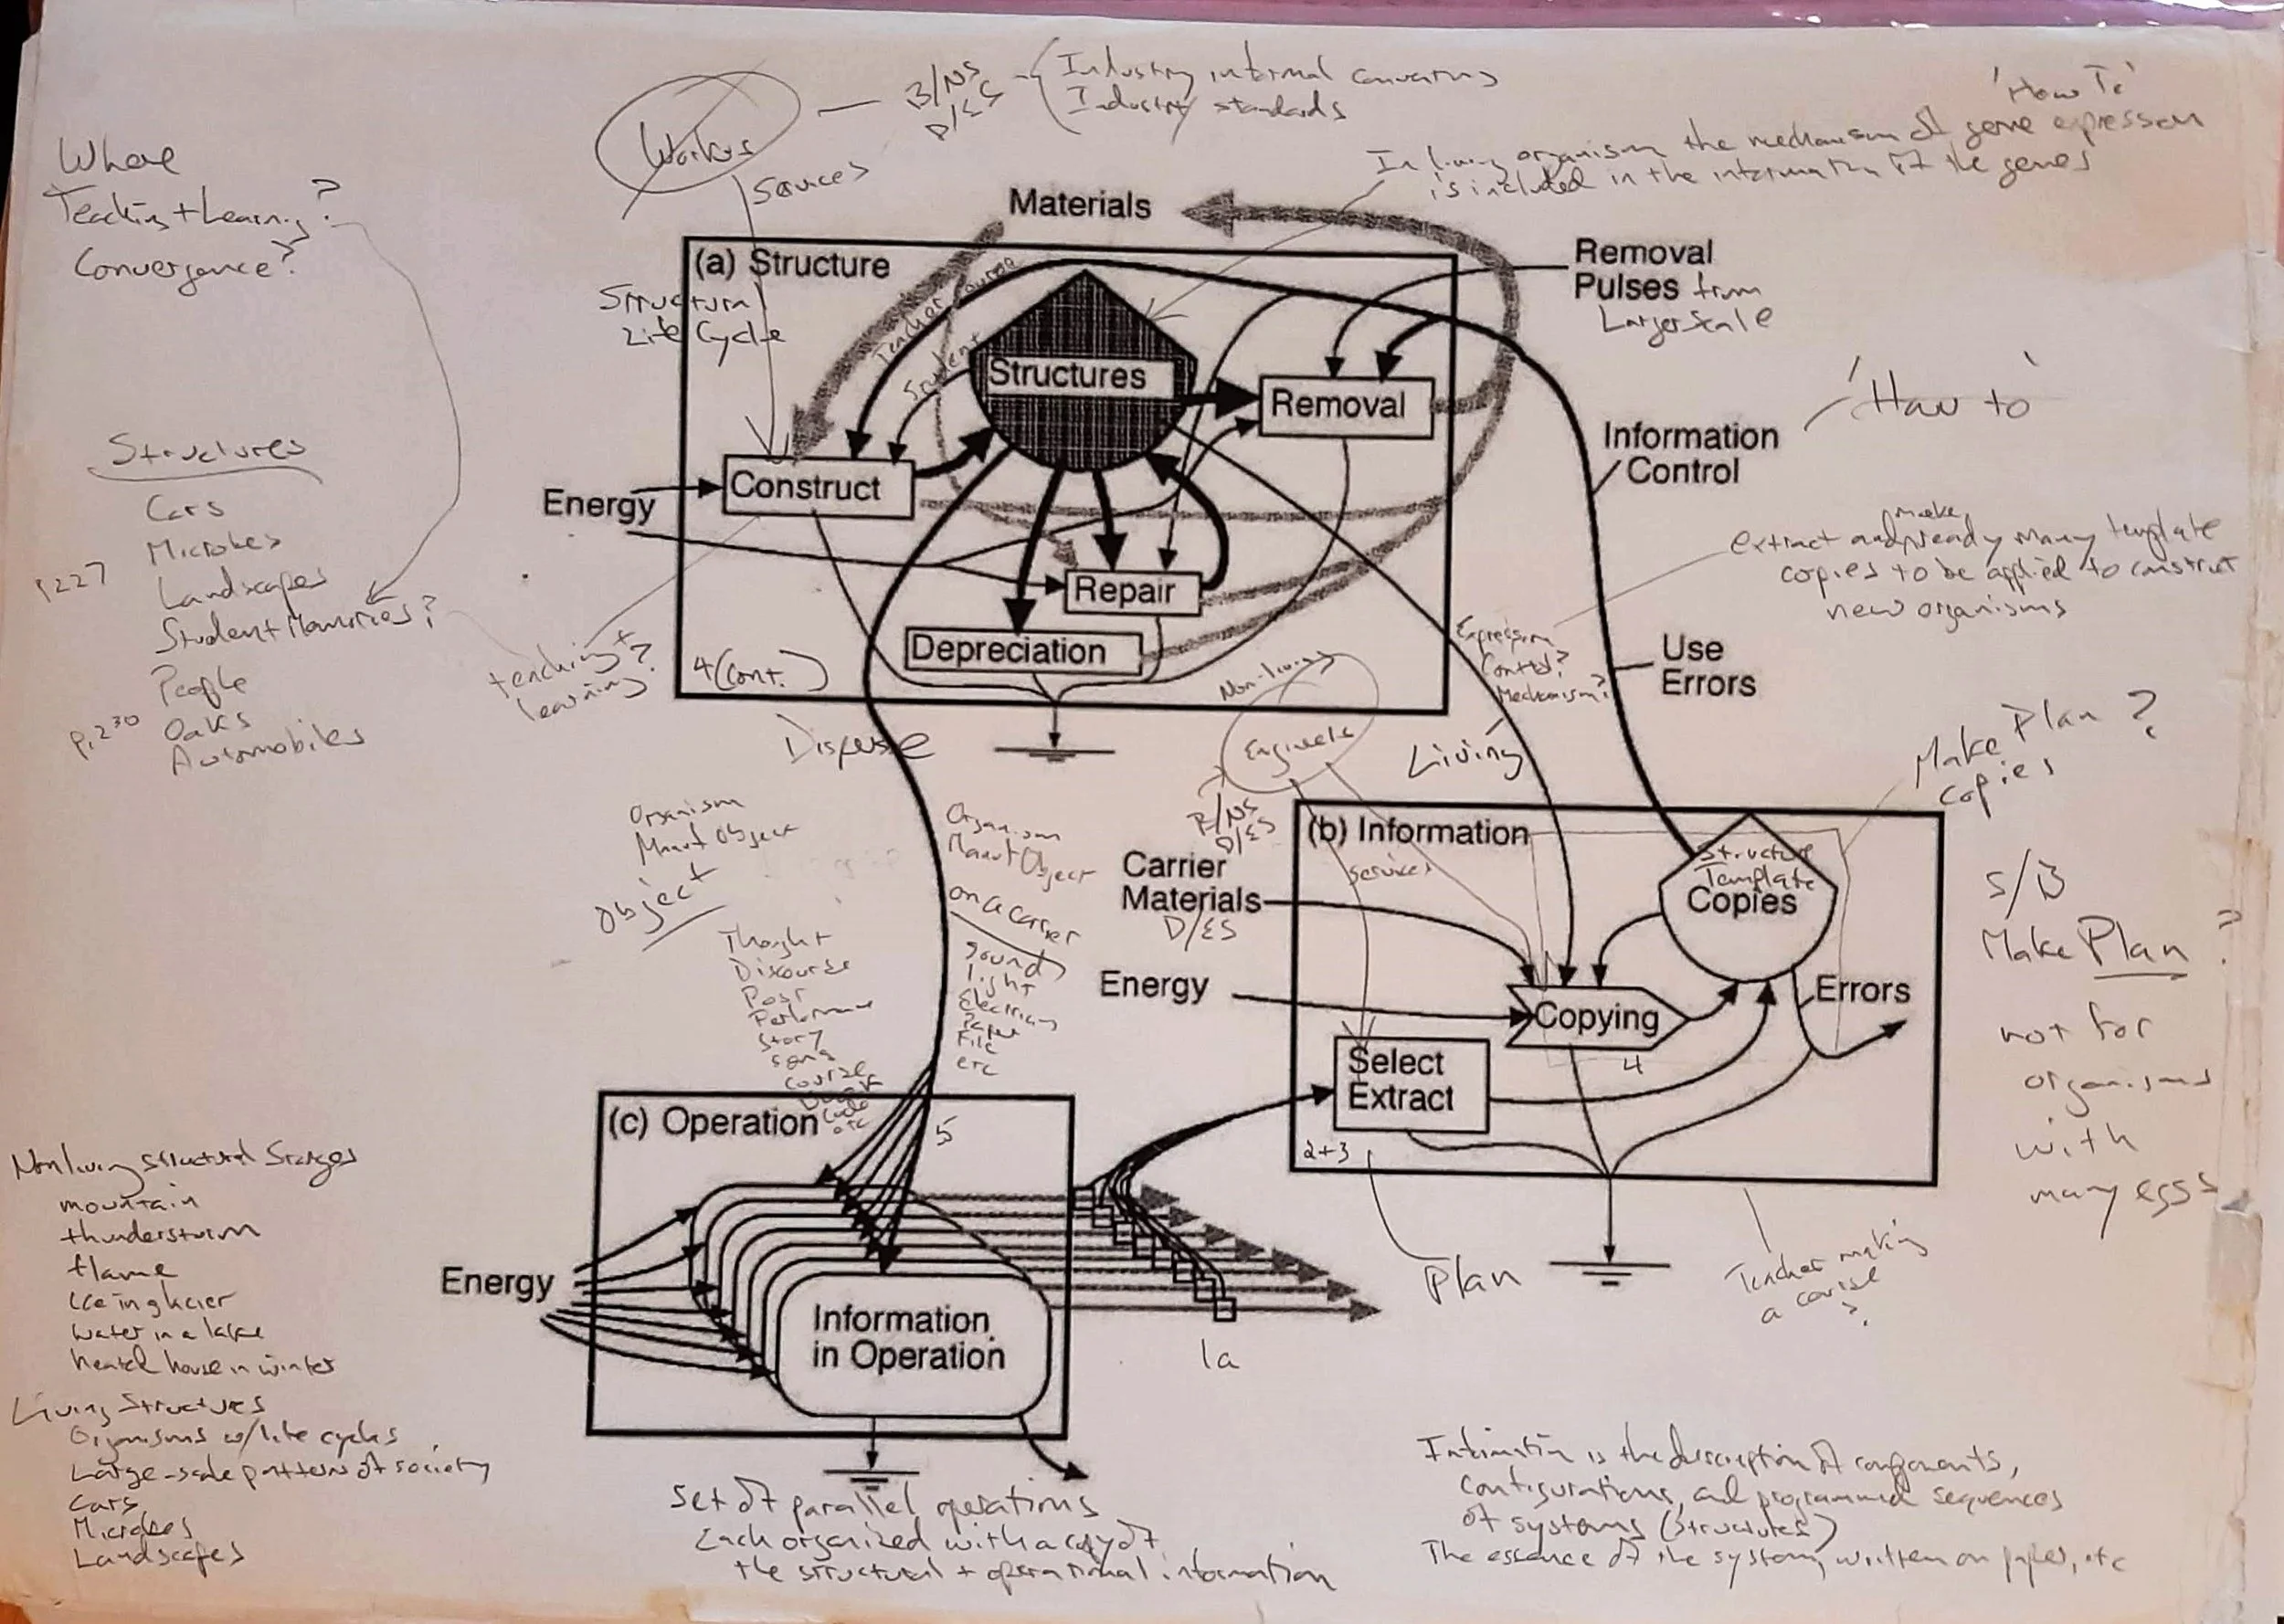 Workers
B/NS
D/ES
Industry internal
Industry standards
Services
'How To'
In living organism the mechanism of gene expression
is included in the information of the genes
Where
Teaching + Learning?
Convergence?
Materials
(a) Structure
Structural
Life Cycle
Teacher
Student
Structures
Removal
Removal
Pulses from
Larger Scale
'How to'
Information
Control
Construct
Energy
Repair
Depreciation
4 (cont.)
Structures
Cars
Microbes
p.227
Landscapes
Student Memories?
People
p.230
Oaks
Automobiles
teaching +
learning?
make
extract and ready many template
copies to be applied to construct
new organisms
Use
Errors
Expression
Control?
Mechanism?
Non-living
Engineers
Living
Disperse
Make Plan?
Copies
Organism
Manut Object
Object
Organism
Manut Object
on a carrier
Thought
Discourse
Post
Performance
Story
Song
Course
Code
etc
Sound
light
Electricity
Paper
File
etc
D/ES
(b) Information
Services
Carrier
Materials
D/ES
Structure
Template
Copies
Energy
Copying
4
Errors
Select
Extract
2+3
S/B
Make Plan?
not for
organisms
with
many eggs
(c) Operation
5
Energy
Information
in Operation
1a
Plan
Teacher making
a course
?
Nonliving structural Storages
mountain
thunderstorm
flame
Ice in glacier
Water in a lake
heated house in winter
Living Structures
Organisms w/life cycles
Large-scale pattern of society
Cars
Microbes
Landscapes
Set of parallel operations
Each organized with a copy of
the structural + operational information
Information is the description of components,
configurations, and programmed sequences
of systems (structures)
The essence of the system, written on paper, etc